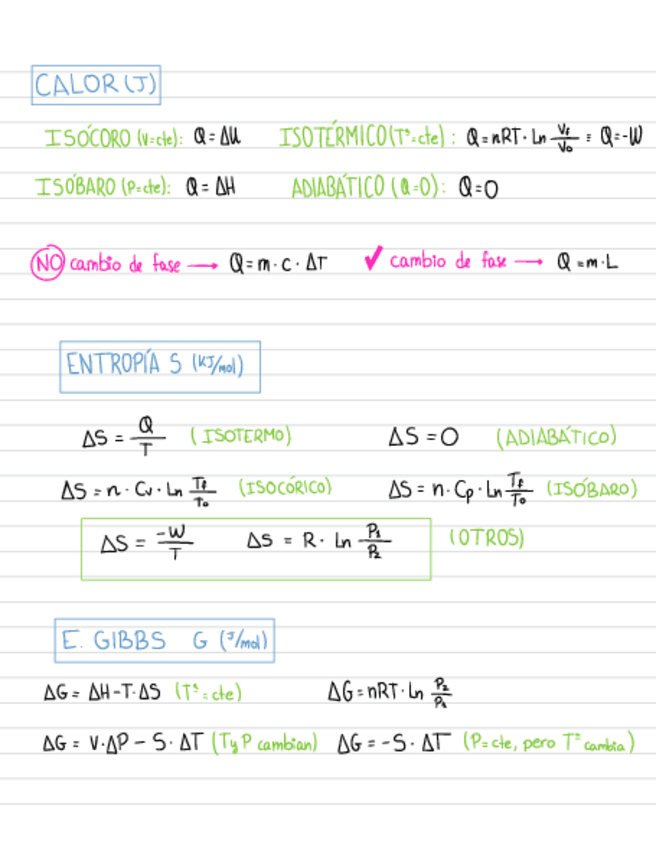 CALOR (J)
ISÓCORO (V=cte): Q = ΔU    ISOTÉRMICO (Tª=cte): Q = nRT · Ln Vf/Vo = Q=-W
ISÓBARO (P=cte): Q = ΔH    ADIABÁTICO (Q=0): Q=0
NO cambio de fase → Q = m · c · ΔT    ✓ cambio de fase → Q = m·L
ENTROPÍA S (KJ/mol)
ΔS = Q/T (ISOTERMO)    ΔS = 0 (ADIABÁTICO)
ΔS = n · Cv · Ln Tf/To (ISOCÓRICO)    ΔS = n · Cp · Ln Tf/To (ISÓBARO)
ΔS = -W/T    ΔS = R · Ln P1/P2    (OTROS)
E. GIBBS G (J/mol)
ΔG = ΔH-T·ΔS (Tª=cte)    ΔG = nRT · Ln P2/P1
ΔG = V·ΔP - S · ΔT (T y P cambian)    ΔG = -S · ΔT (P=cte, pero Tª cambia)